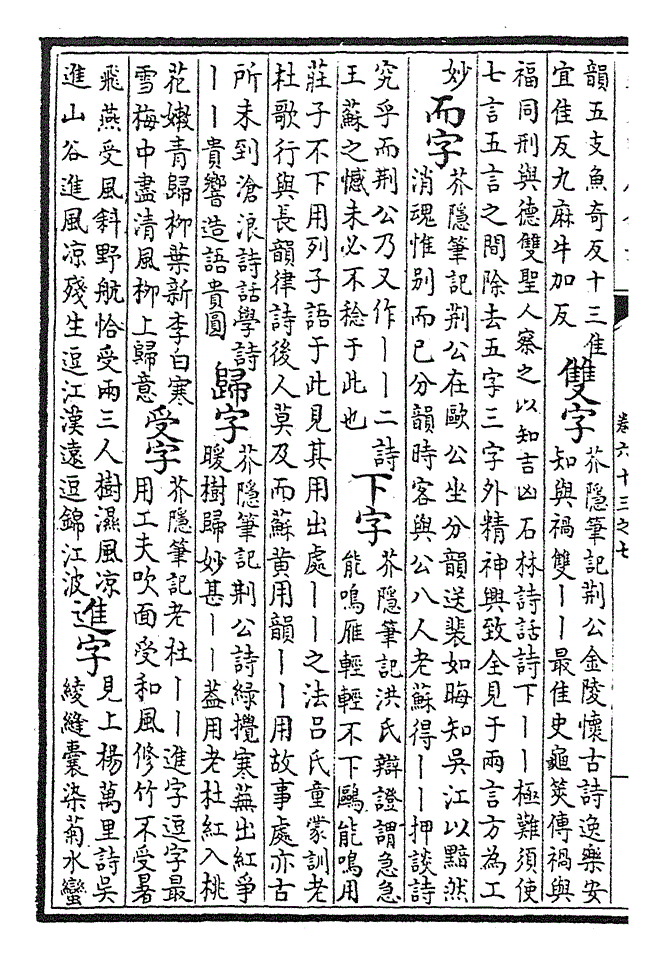 韻五支魚奇反十三佳
宜佳反九麻牛加反
雙字
芥隱筆記荆公金陵懷古詩逸樂安
知與禍雙丨丨最佳史龜筴傳禍與
福同刑與德雙聖人察之以知吉凶石林詩話詩下丨丨極難須使
七言五言之間除去五字三字外精神興致全見于兩言方為工
妙
而字
芥隱筆記荆公在歐公坐分韻送裴如晦知吳江以黯然
消魂惟别而已分韻時客與公八人老蘇得丨丨押談詩
究乎而荆公乃又作丨丨二詩
王蘇之憾未必不稔于此也
下字
芥隱筆記洪氏辯證謂急急
能鳴雁輕輕不下鷗能鳴用
莊子不下用列子語于此見其用出處丨丨之法吕氏童蒙訓老
杜歌行與長韻律詩後人莫及而蘇黄用韻丨丨用故事處亦古
所未到滄浪詩話學詩
丨丨貴響造語貴圓
歸字
芥隱筆記荆公詩緑攪寒蕪出紅爭
暖樹歸妙甚丨丨葢用老杜紅入桃
花嫩青歸柳葉新李白寒
雪梅中盡清風柳上歸意
受字
芥隱筆記老杜丨丨進字逗字最
用工夫吹面受和風修竹不受暑
飛燕受風斜野航恰受兩三人樹濕風凉
進山谷進風凉殘生逗江漢遠逗錦江波
進字
見上楊萬里詩吳
綾縫囊染菊水蠻
卷六十三之七